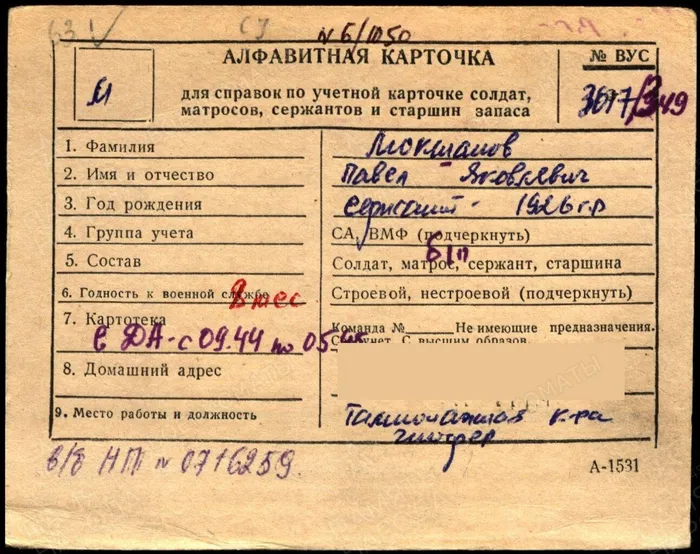 63
СУ
№ Б/1150
АЛФАВИТНАЯ КАРТОЧКА
№ ВУС
М
для справок по учетной карточке солдат,
матросов, сержантов и старшин запаса
1. Фамилия
2. Имя и отчество Павел Яковлевич
3. Год рождения Сержант - 1926 г.р
4. Группа учета СА, ВМФ (подчеркнуть)
б/п
5. Состав Солдат, матрос, сержант, старшина
6. Годность к военной службе Строевой, нестроевой (подчеркнуть)
7. Картотека Команда № Не имеющие предназначения.
С высшим образов.
в ДА - с 09.44 по 05
8. Домашний адрес
9. Место работы и должность к-ра
шофер
в/б НП № 0716259
А-1531